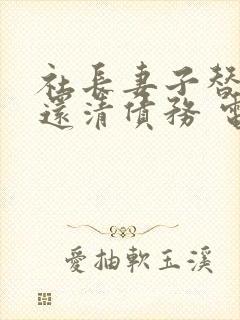 社長妻子替
還清債務 電
愛抽軟玉溪